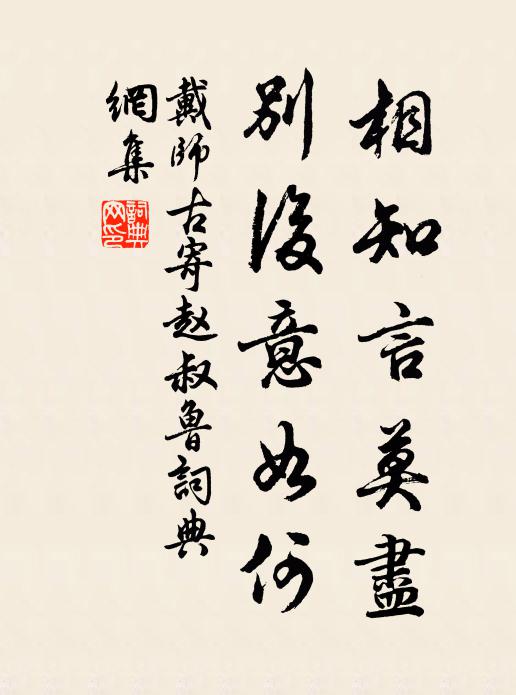 相知言莫盡
別後意如何
戴師古寄赵叔魯詞典
網集
詞典網印